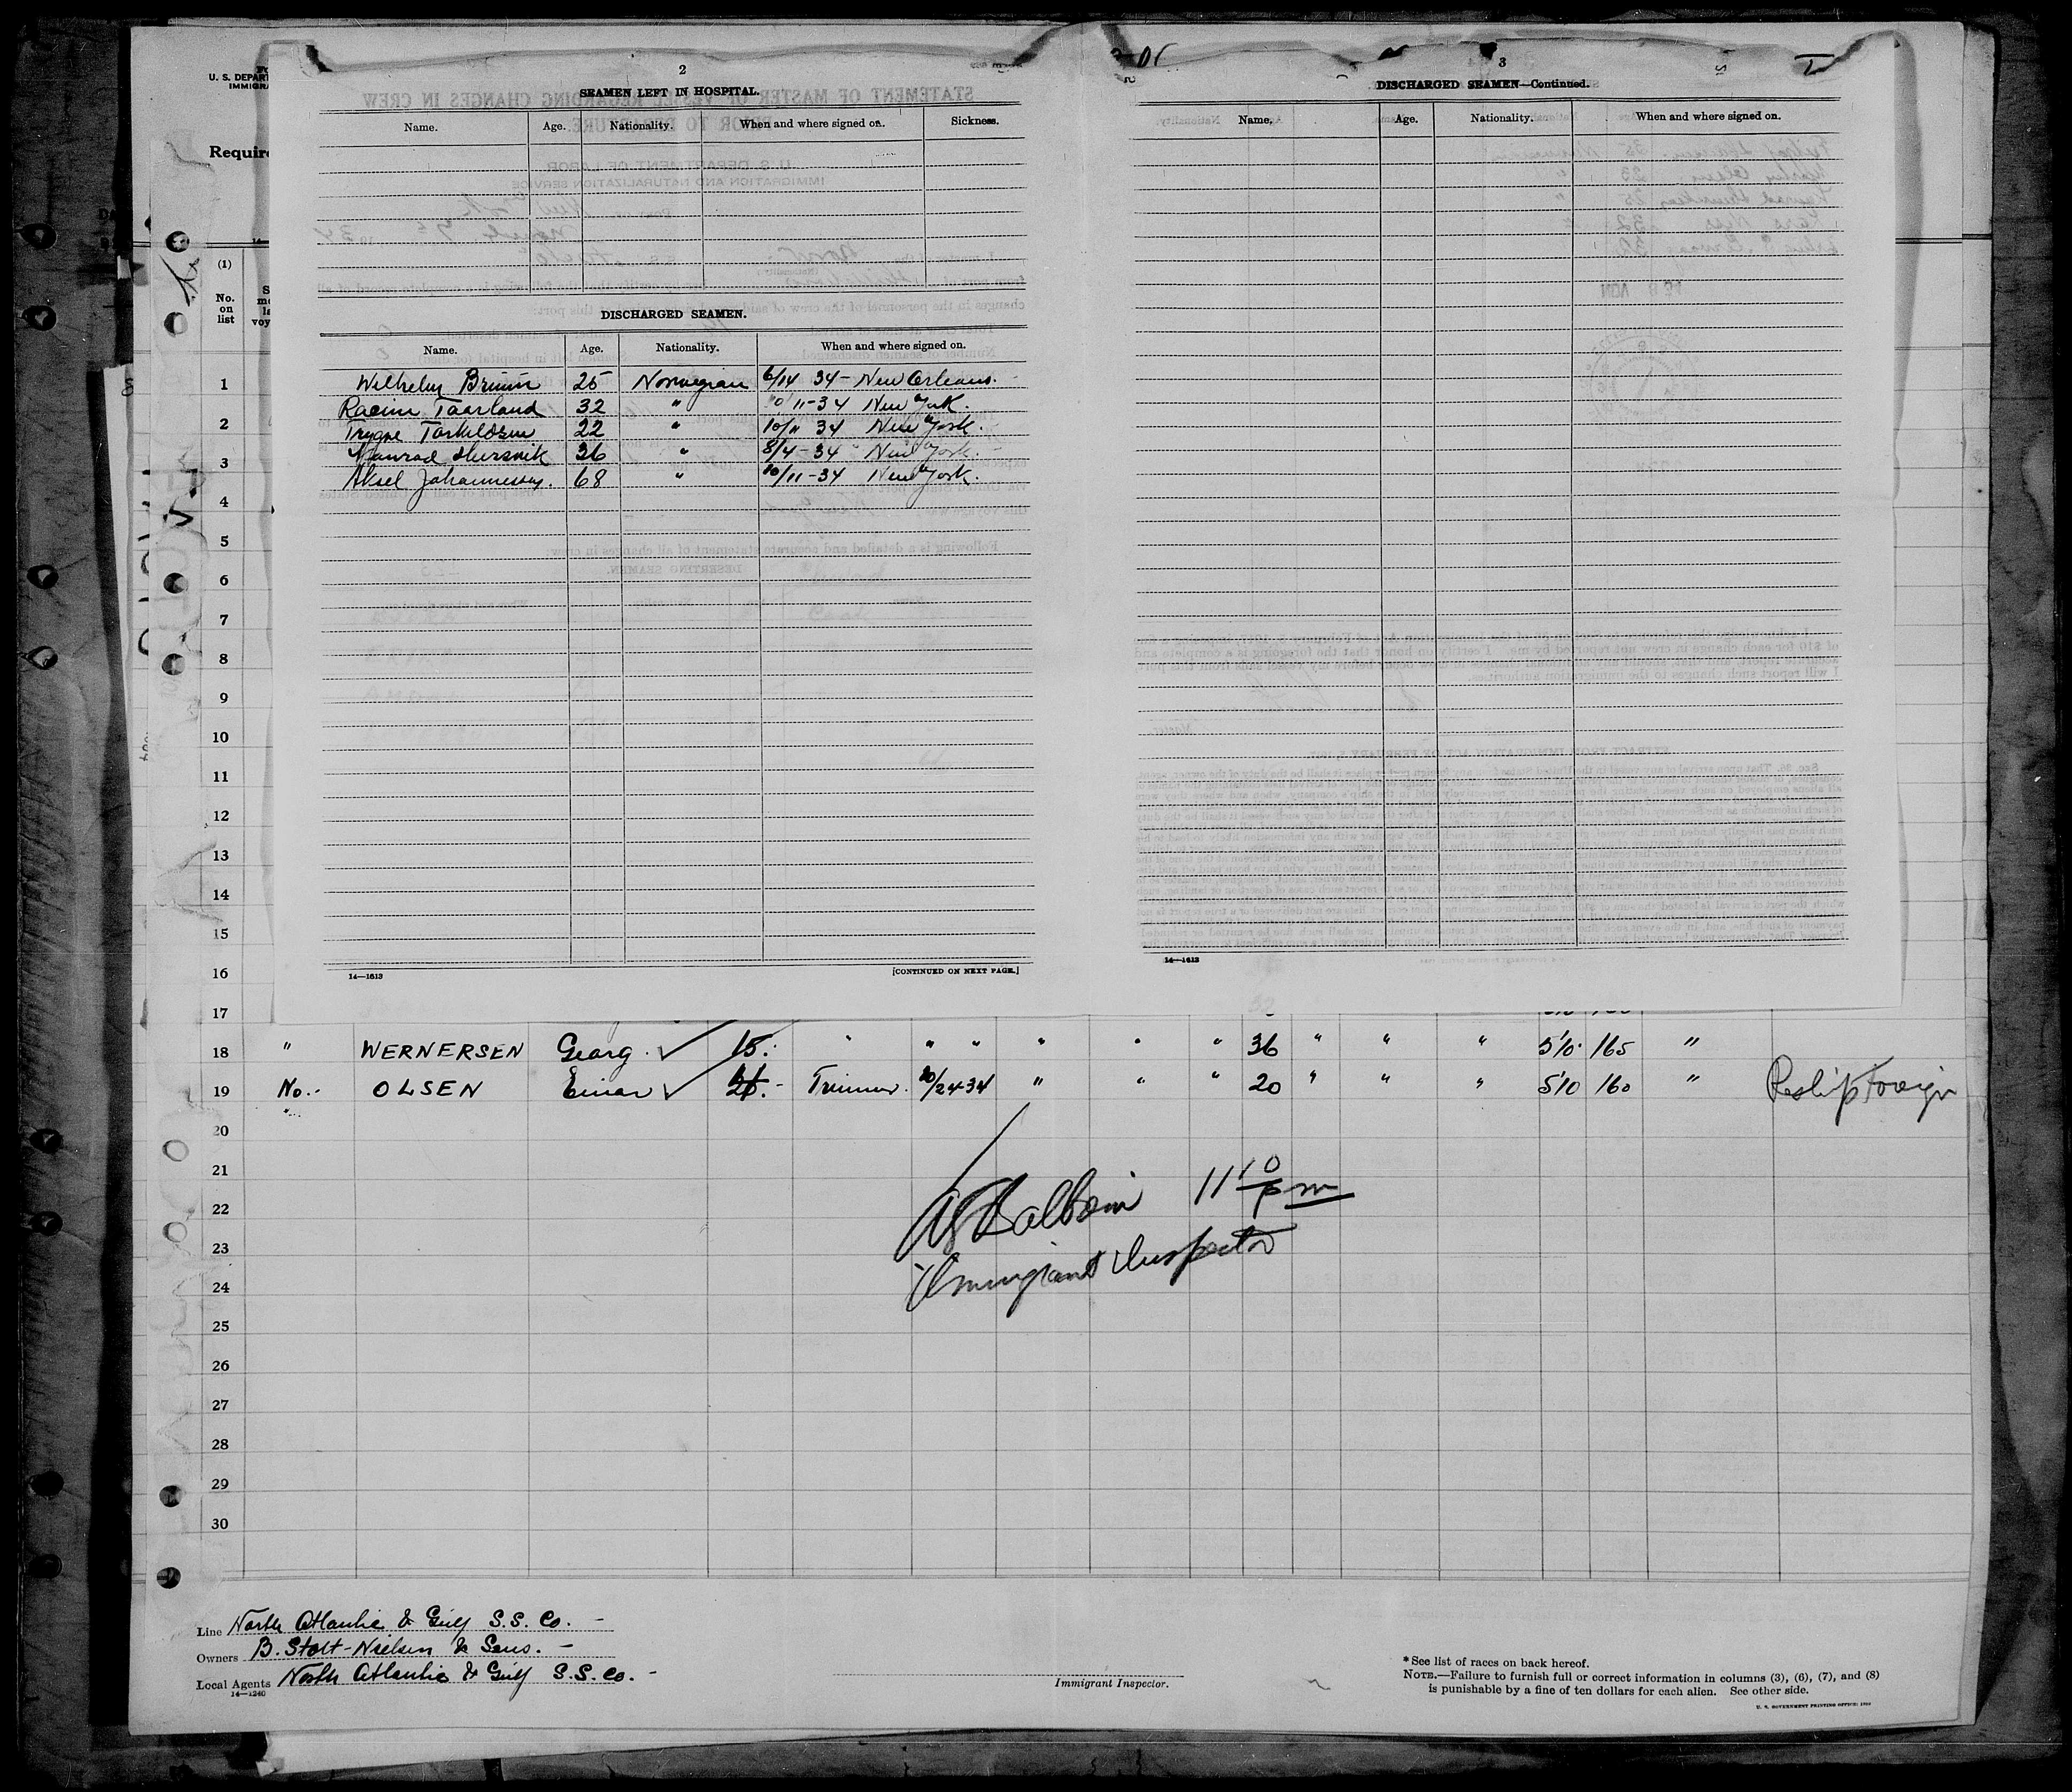 2
SEAMEN LEFT IN HOSPITAL.
Name. Age. Nationality. When and where signed on. Sickness.
DISCHARGED SEAMEN.
Name. Age. Nationality. When and where signed on.
Wilhelm Bruun 25 Norwegian 6/14 34 - New Orleans.
Taarland 32 " 10/11-34 New York.
Trygve Torkildsen 22 " 10/11 34 New York.
36 " 8/4-34 New York.
Aksel Johannessen. 68 " 10/11-34 New York.
14—1613 [CONTINUED ON NEXT PAGE.]
3
DISCHARGED SEAMEN—Continued.
Name. Age. Nationality. When and where signed on.
14—1613
U. S. DEPAR
IMMIGRA
Require
(1)
No. on list
1
2
3
4
5
6
7
8
9
10
11
12
13
14
15
16
17
18 " WERNERSEN Georg. ✓ 15. " " " " " " 36 " " " 5'10" 165 "
19 No. - OLSEN Einar ✓ Trimmer. 10/24-34 " " " 20 " " " 5'10 160 " Reship Foreign
20
21
22
23
24
25
26
27
28
29
30
11 10 pm
Immigrant Inspector
Line North Atlantic & Gulf S.S. Co. -
Owners B. Stolt-Nielsen & Sons. -
Local Agents North Atlantic & Gulf S.S. Co. -
14—1240
Immigrant Inspector.
* See list of races on back hereof.
NOTE.—Failure to furnish full or correct information in columns (3), (6), (7), and (8)
is punishable by a fine of ten dollars for each alien. See other side.
U. S. GOVERNMENT PRINTING OFFICE: